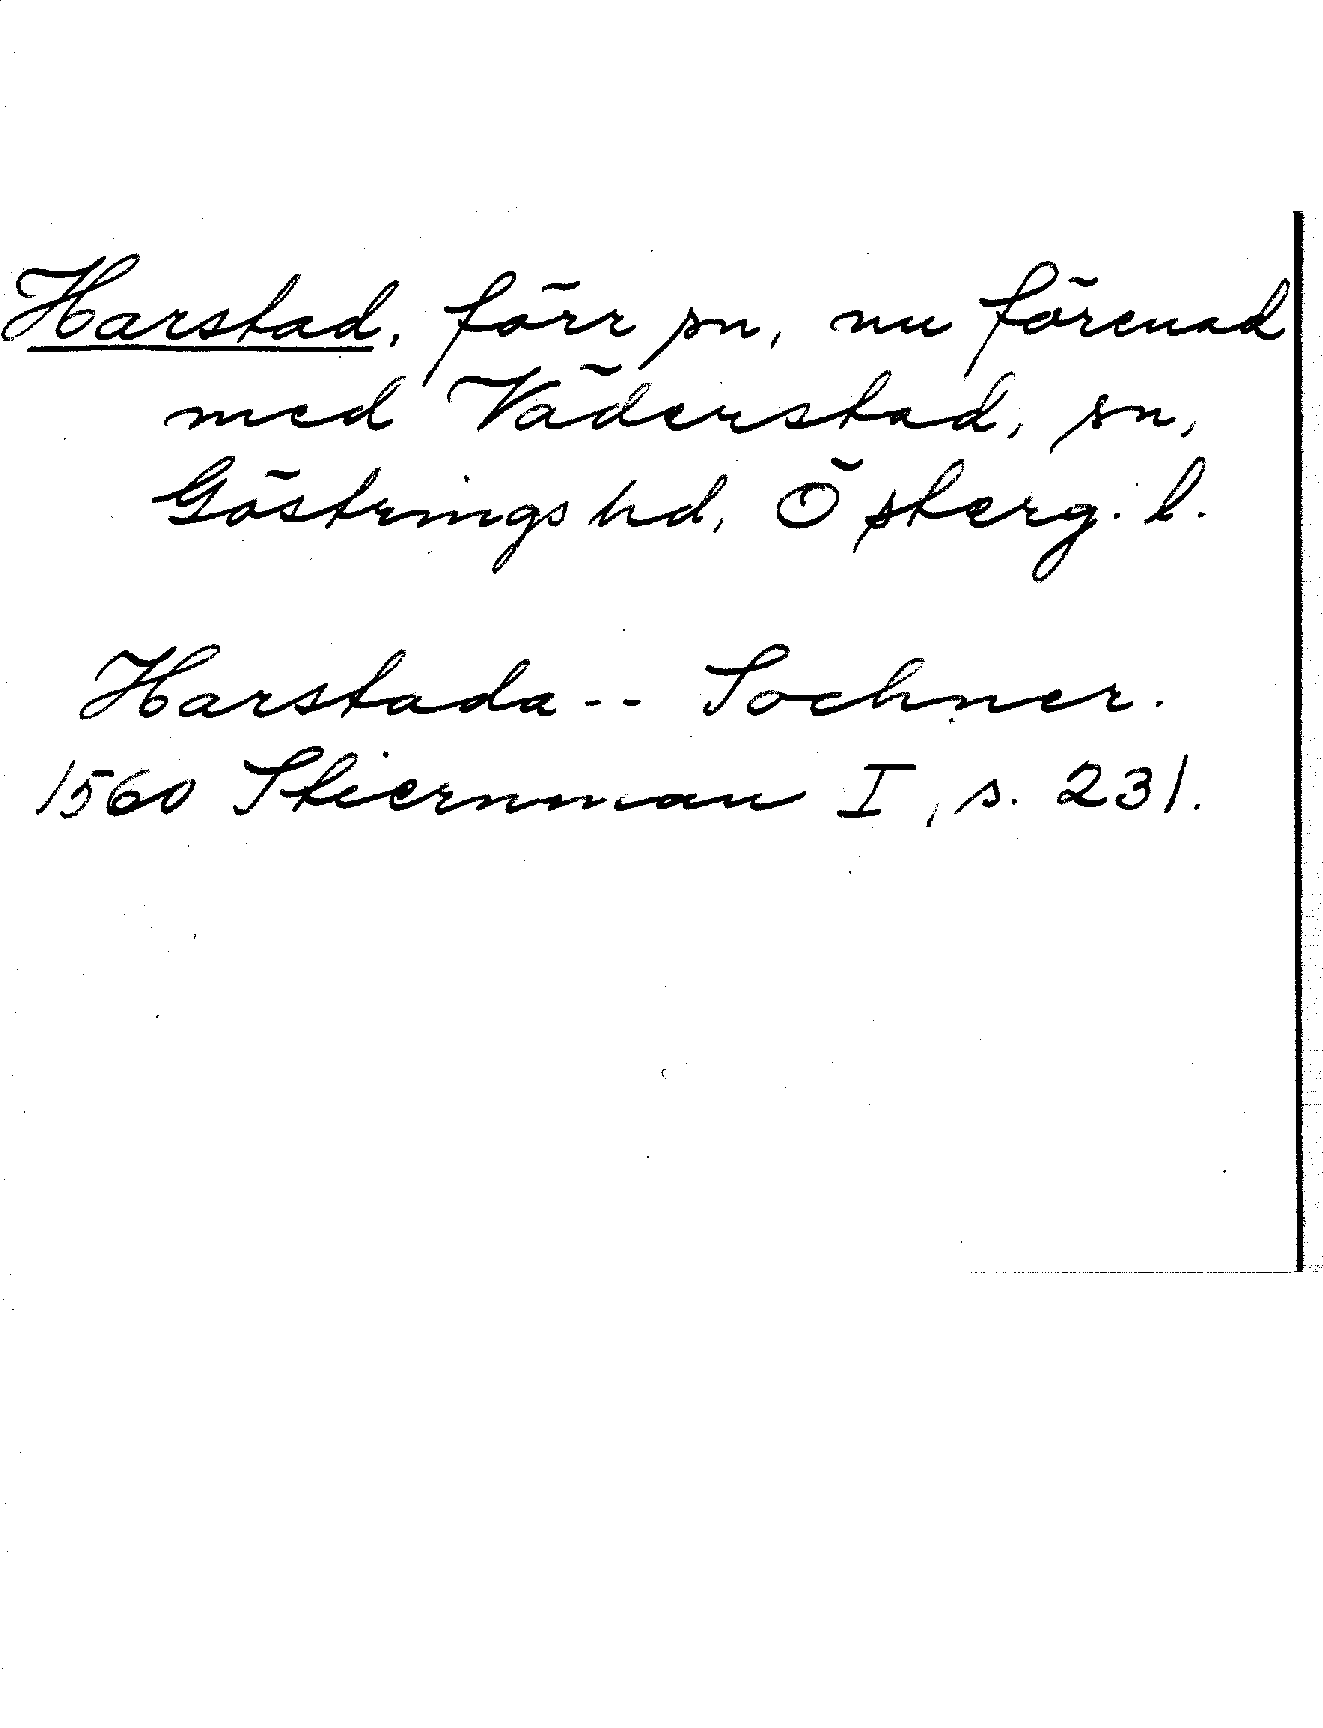 Harstad, förr sn, nu förenad
med Väderstad, sn,
Göstrings hd, Österg. l.
Harstada -- Sochner.
1560 Stiernman I, s. 231.